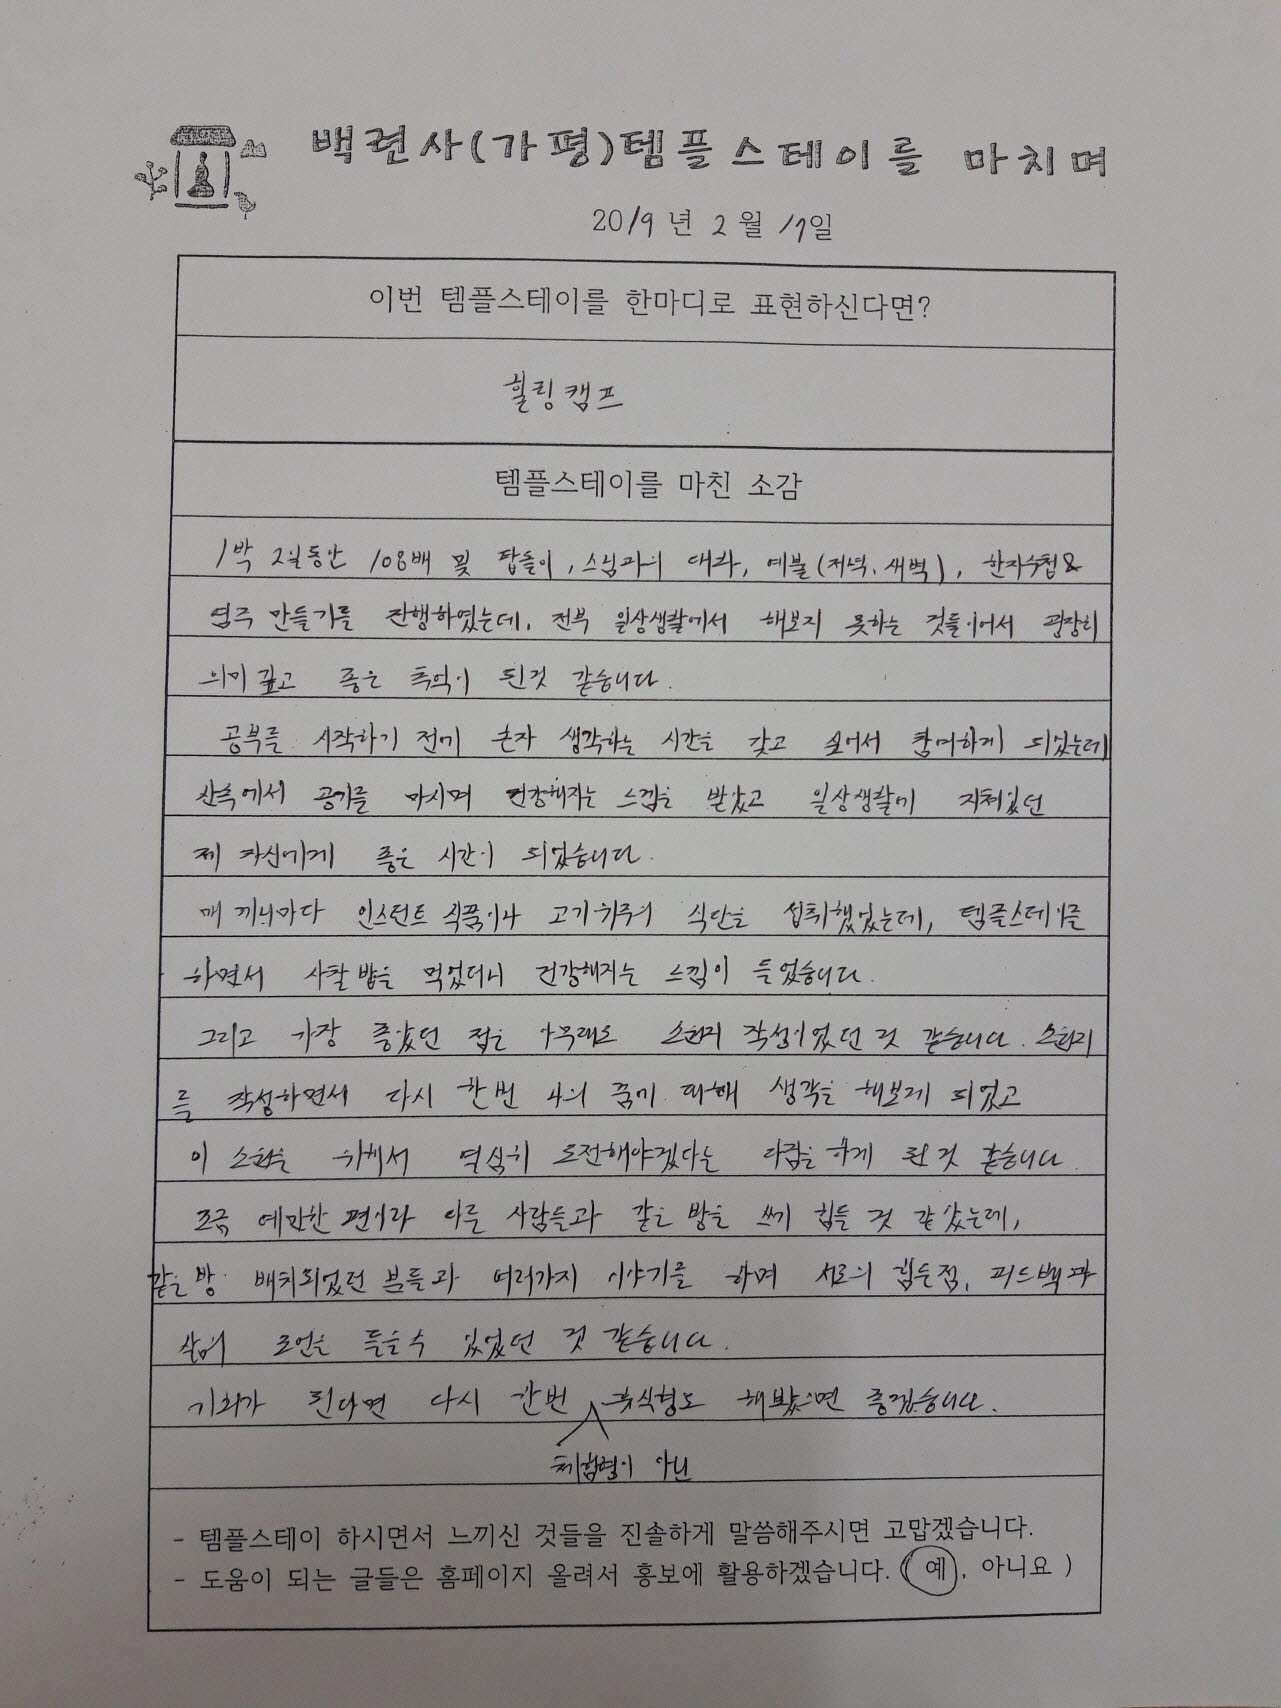 백련사(가평)템플스테이를 마치며
2019년 2월 17일
이번 템플스테이를 한마디로 표현하신다면?
힐링캠프
템플스테이를 마친 소감
1박 2일동안 108배 및 탑돌이, 스님과의 대화, 예불(저녁, 새벽), 한지수첩&
염주 만들기를 진행하였는데, 전부 일상생활에서 해보지 못하는 것들이어서 굉장히
의미 깊고 좋은 추억이 된것 같습니다.
공부를 시작하기 전에 혼자 생각하는 시간을 갖고 싶어서 참여하게 되었는데
산속에서 공기를 마시며 건강해지는 느낌을 받았고 일상생활에 지쳐있던
제 자신에게 좋은 시간이 되었습니다.
매 끼니마다 인스턴트 식품이나 고기위주의 식단을 섭취했었는데, 템플스테이를
하면서 사찰 밥을 먹었더니 건강해지는 느낌이 들었습니다.
그리고 가장 좋았던 점은 아무래도 소원지 작성이었던 것 같습니다. 소원지
를 작성하면서 다시 한번 나의 꿈에 대해 생각을 해보게 되었고
이 소원을 위해서 열심히 도전해야겠다는 다짐을 하게 된것 같습니다.
조금 예민한 편이라 다른 사람들과 같은 방을 쓰기 힘들 것 같았는데,
같은 방 배치되었던 분들과 여러가지 이야기를 하며 서로의 힘든점, 피드백과
삶의 조언을 들을수 있었던 것 같습니다.
기회가 된다면 다시 한번 휴식형도 해봤으면 좋겠습니다.
체험형이 아닌
- 템플스테이 하시면서 느끼신 것들을 진솔하게 말씀해주시면 고맙겠습니다.
- 도움이 되는 글들은 홈페이지 올려서 홍보에 활용하겠습니다. ( 예, 아니요 )